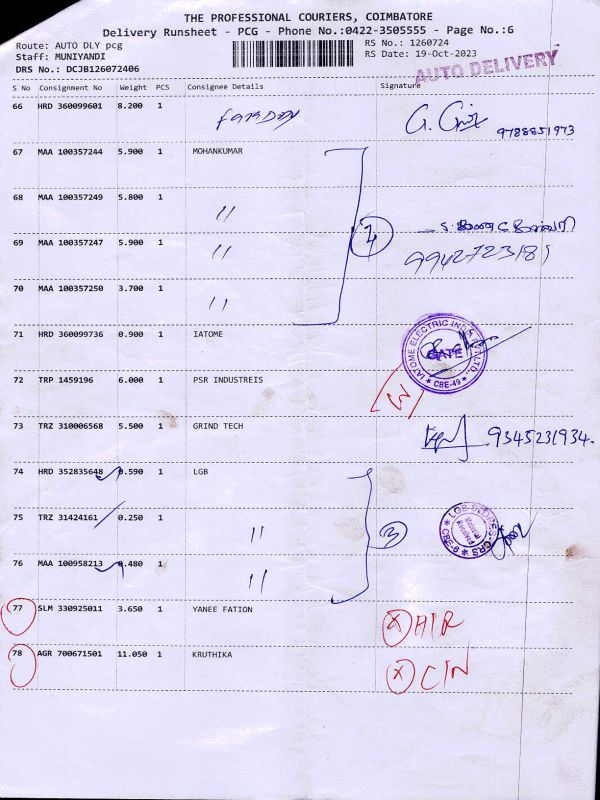 THE PROFESSIONAL COURIERS, COIMBATORE
Delivery Runsheet - PCG - Phone No.:0422-3505555 - Page No.:6
Route: AUTO DLY pcg
Staff: MUNIYANDI
DRS No.: DCJB126072406
RS No.: 1260724
RS Date: 19-Oct-2023
AUTO DELIVERY
S No Consignment No Weight PCS Consignee Details Signature
66 HRD 360099601 8.200 1
9788851973
67 MAA 100357244 5.900 1 MOHANKUMAR
68 MAA 100357249 5.800 1 "
69 MAA 100357247 5.900 1 "
9942723181
70 MAA 100357250 3.700 1 "
71 HRD 360099736 0.900 1 IATOME
IATOME ELECTRIC
GATE
CBE-49
72 TRP 1459196 6.000 1 PSR INDUSTREIS
73 TRZ 310006568 5.500 1 GRIND TECH 9345231934.
74 HRD 352835648 0.590 1 LGB
75 TRZ 31424161 0.250 1 "
3
CBE-6
76 MAA 100958213 0.480 1 "
77 SLM 330925011 3.650 1 YANEE FATION X AIR
78 AGR 700671501 11.050 1 KRUTHIKA X C/N